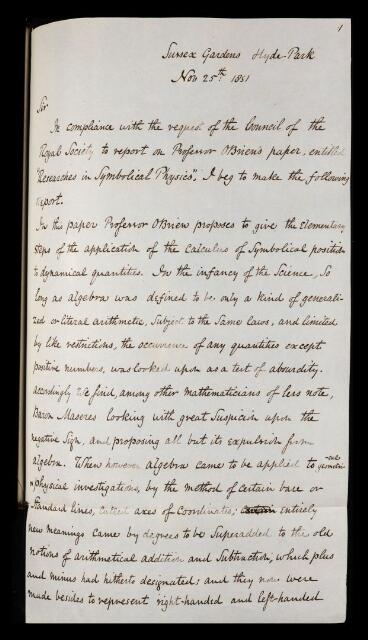 1
Sussex Gardens Hyde-Park
Nov 25th 1851
Sir
In compliance with the request of the Council of the
Royal Society to report on Professor O'Brien's paper, entitled
"Researches in Symbolical Physics", I beg to make the following
report.
In this paper Professor O'Brien proposes to give the elementary
steps of the application of the calculus of Symbolical position
to dynamical quantities. In the infancy of the Science, so
long as algebra was defined to be only a kind of generali-
zed or literal arithmetic, subject to the same laws, and limited
by like restrictions, the occurrence of any quantities except
positive numbers, was looked upon as a test of absurdity.
accordingly we find, among other mathematicians of less note,
Baron Maseres looking with great suspicion upon the
negative sign, and proposing all but its expulsion from
algebra. When however algebra came to be applied to geometri-cal
physical investigations, by the method of certain base or
standard lines, called axes of coordinates; entirely
new meanings came by degrees to be superadded to the old
notions of arithmetical addition and subtraction, which plus
and minus had hitherto designated; and they now were
made besides to represent right-handed and left-handed